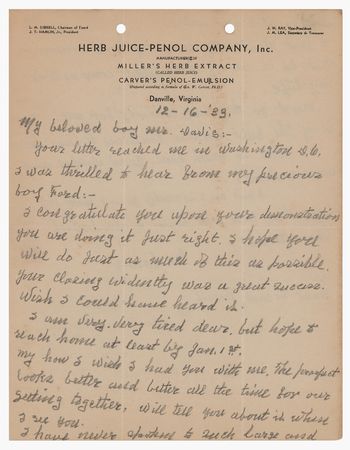 L. M. GIBNELL, Chairman of Board
J. T. HAMLIN, Jr., President
J. W. RAY, Vice-President
J. M. LEA, Secretary & Treasurer
HERB JUICE-PENOL COMPANY, Inc.
MANUFACTURERS OF
MILLER'S HERB EXTRACT
(CALLED HERB JUICE)
CARVER'S PENOL-EMULSION
(Prepared according to formula of Geo. W. Carver, Ph.D.)
Danville, Virginia
12-16-'33.
My beloved boy Mr. Davis:-
Your letter reached me in Washington D.C.
I was thrilled to hear from my precious
boy Ford:-
I congratulate you upon your demonstration
you are doing it just right. I hope you'll
will do just as much of this as possible.
Your closing evidently was a great success.
Wish I could have heard it.
I am very, very tired dear, but hope to
reach home at least by Jan. 1st.
my how I wish I had you with me. The prospect
looks better and better all the time for our
getting together, will tell you about it when
I see you.
I have never spoken to such large and